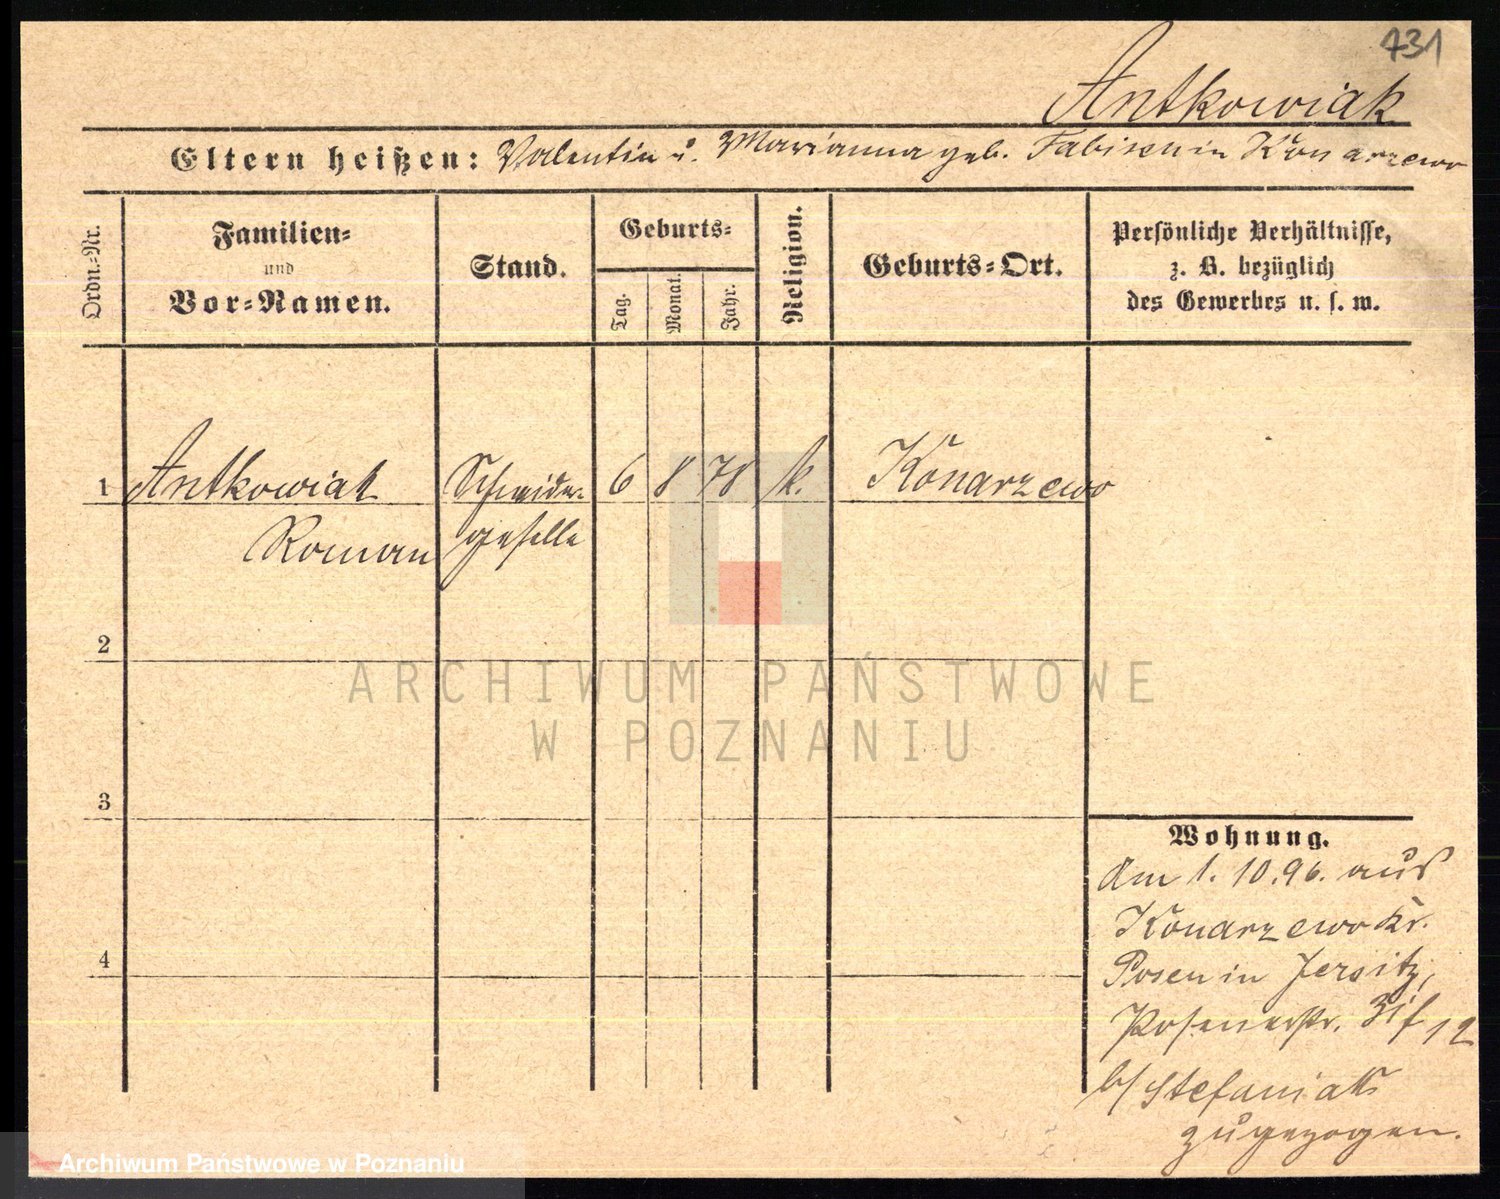 431
Antkowiak
Eltern heißen: Valentin u. Marianna geb. Fabisen in Konarzewo
Ordn.-Nr.
Familien-
und
Vor-Namen.
Stand.
Geburts-
Tag.
Monat.
Jahr.
Religion.
Geburts-Ort.
Persönliche Verhältnisse,
z. B. bezüglich
des Gewerbes u. s. w.
1 Antkowiak Schneider 6 8 78 k. Konarzewo
Roman geselle
2
3
4
Wohnung.
Am 1. 10. 96. aus
Konarzewo Kr.
Posen in Jersitz,
Posenerstr. 31f 12
b/ Stefaniak
zugezogen.
ARCHIWUM PAŃSTWOWE
W POZNANIU
Archiwum Państwowe w Poznaniu